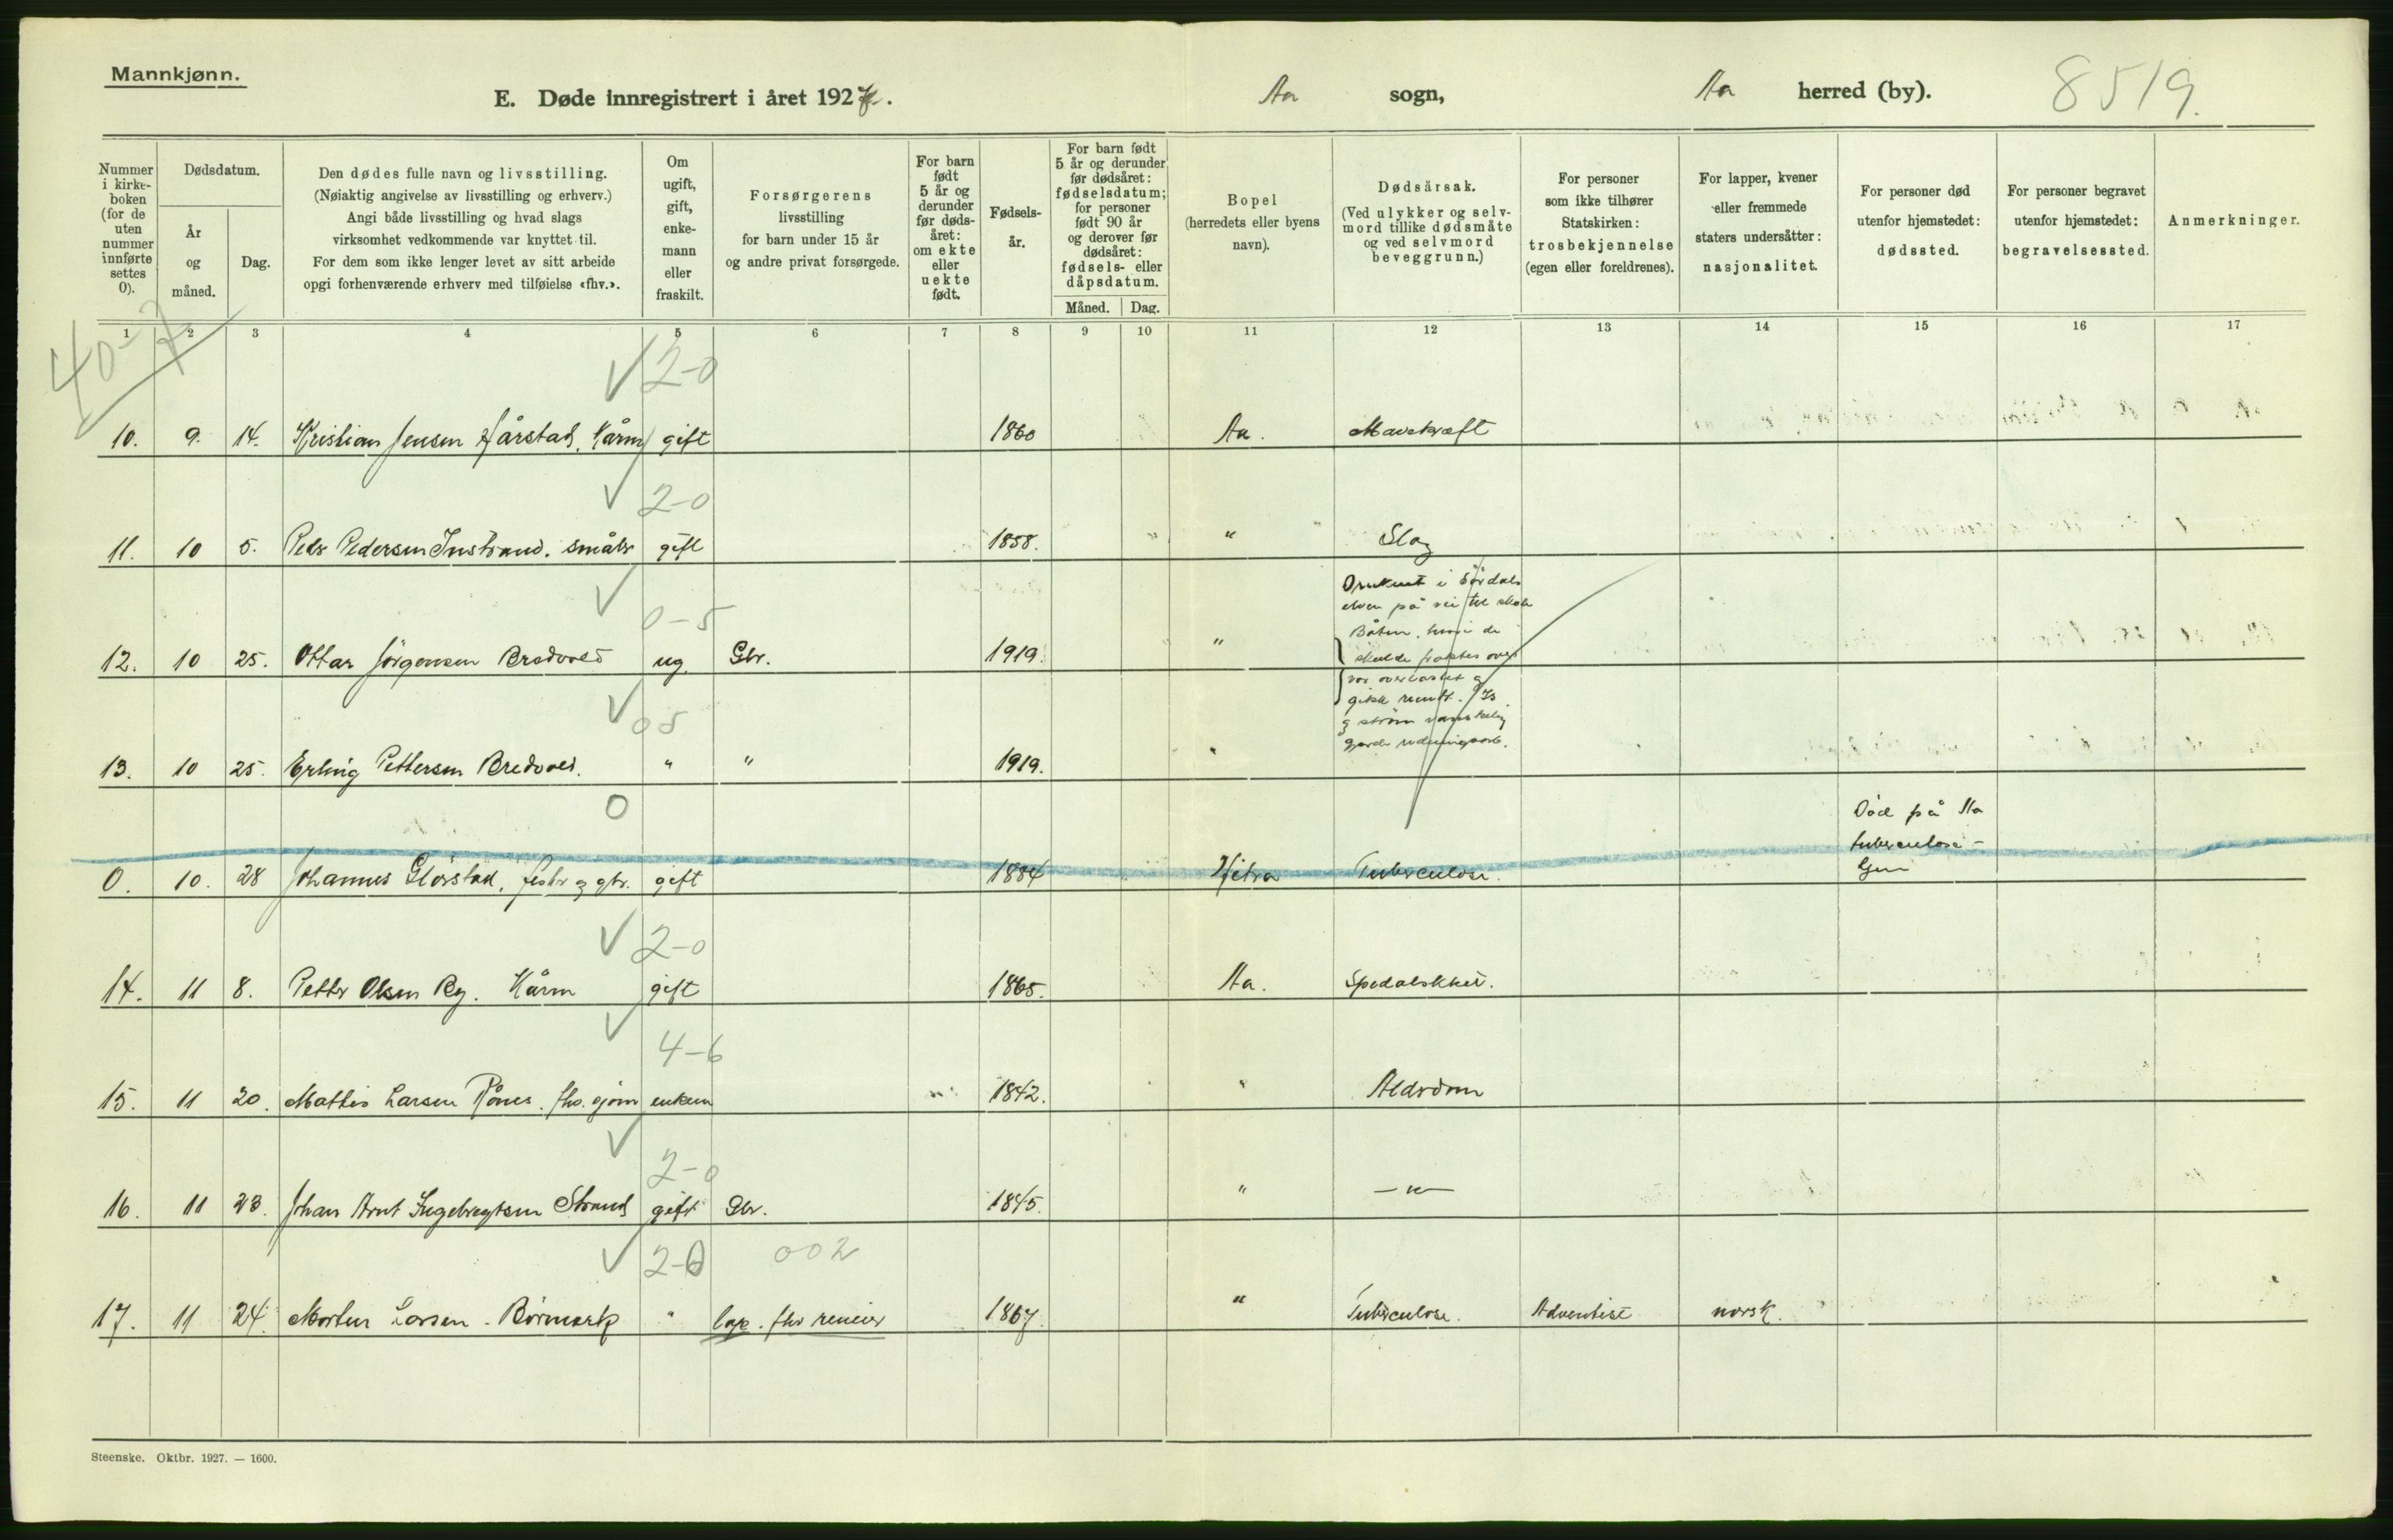 Mannkjønn.
E. Døde innregistrert i året 1927. Aa sogn, Aa herred (by). 8519.
Nummer i kirkeboken (for de uten nummer innførte settes 0).
Dødsdatum.
År og måned.
Dag.
Den dødes fulle navn og livsstilling.
(Nøiaktig angivelse av livsstilling og erhverv.)
Angi både livsstilling og hvad slags
virksomhet vedkommende var knyttet til.
For dem som ikke lenger levet av sitt arbeide
opgi forhenværende erhverv med tilføielse «fhv.».
Om ugift, gift, enkemann eller fraskilt.
Forsørgerens
livsstilling
for barn under 15 år
og andre privat forsørgede.
For barn født 5 år og derunder før dødsåret: om ekte eller uekte født.
Fødselsår.
For barn født
5 år og derunder
før dødsåret:
fødselsdatum;
for personer
født 90 år
og derover før
dødsåret:
fødsels- eller
dåpsdatum.
Måned. Dag.
Bopel
(herredets eller byens
navn).
Dødsårsak.
(Ved ulykker og selv-
mord tillike dødsmåte
og ved selvmord
beveggrunn.)
For personer
som ikke tilhører
Statskirken:
trosbekjennelse
(egen eller foreldrenes).
For lapper, kvener
eller fremmede
staters undersåtter:
nasjonalitet.
For personer død
utenfor hjemstedet:
dødssted.
For personer begravet
utenfor hjemstedet:
begravelsessted.
Anmerkninger.
1 2 3 4 5 6 7 8 9 10 11 12 13 14 15 16 17
40-7
2-0
10. 9. 14. Kristian Jensen Hårstad, Kårm gift 1860 Aa. Mavekræft
2-0
11. 10 5. Peder Pedersen Instrand. småbr gift 1858. " Slag
0-5
12. 10 25. Ottar Jörgensen Bredvold ug. Gbr. 1919. "
Druknet i Sördals
elven på vei til skole
Båten, hvori de
skulde fraktes over
var overlastet og
gikk rundt. Is
og ström vanskelig
gjorde redningsarb.
05
13. 10 25. Erling Pettersen Bredvold. " " 1919. "
0
0. 10. 28 Johannes Glörstad, fisker og gbr. gift 1884 Hitra Tuberculose. Död på Aa
tuberculose-
hjem
2-0
14. 11 8. Petter Olsen Ry. Kårm gift 1865. Aa. Spedalskhet.
4-6
15. 11 20. Mathis Larsen Rönes. fhv. gjöm enkem 1842. " Alderdom
2-0
16. 11 23. Johan Arnt Ingebregtsen Strand gift Gbr. 1845. " — " —
2-0 002
17. 11 24. Morten Larsen. Börmark " lap. fhv reneier 1867. " Tuberculose. Adventist norsk.
Steenske. Oktbr. 1927. — 1600.